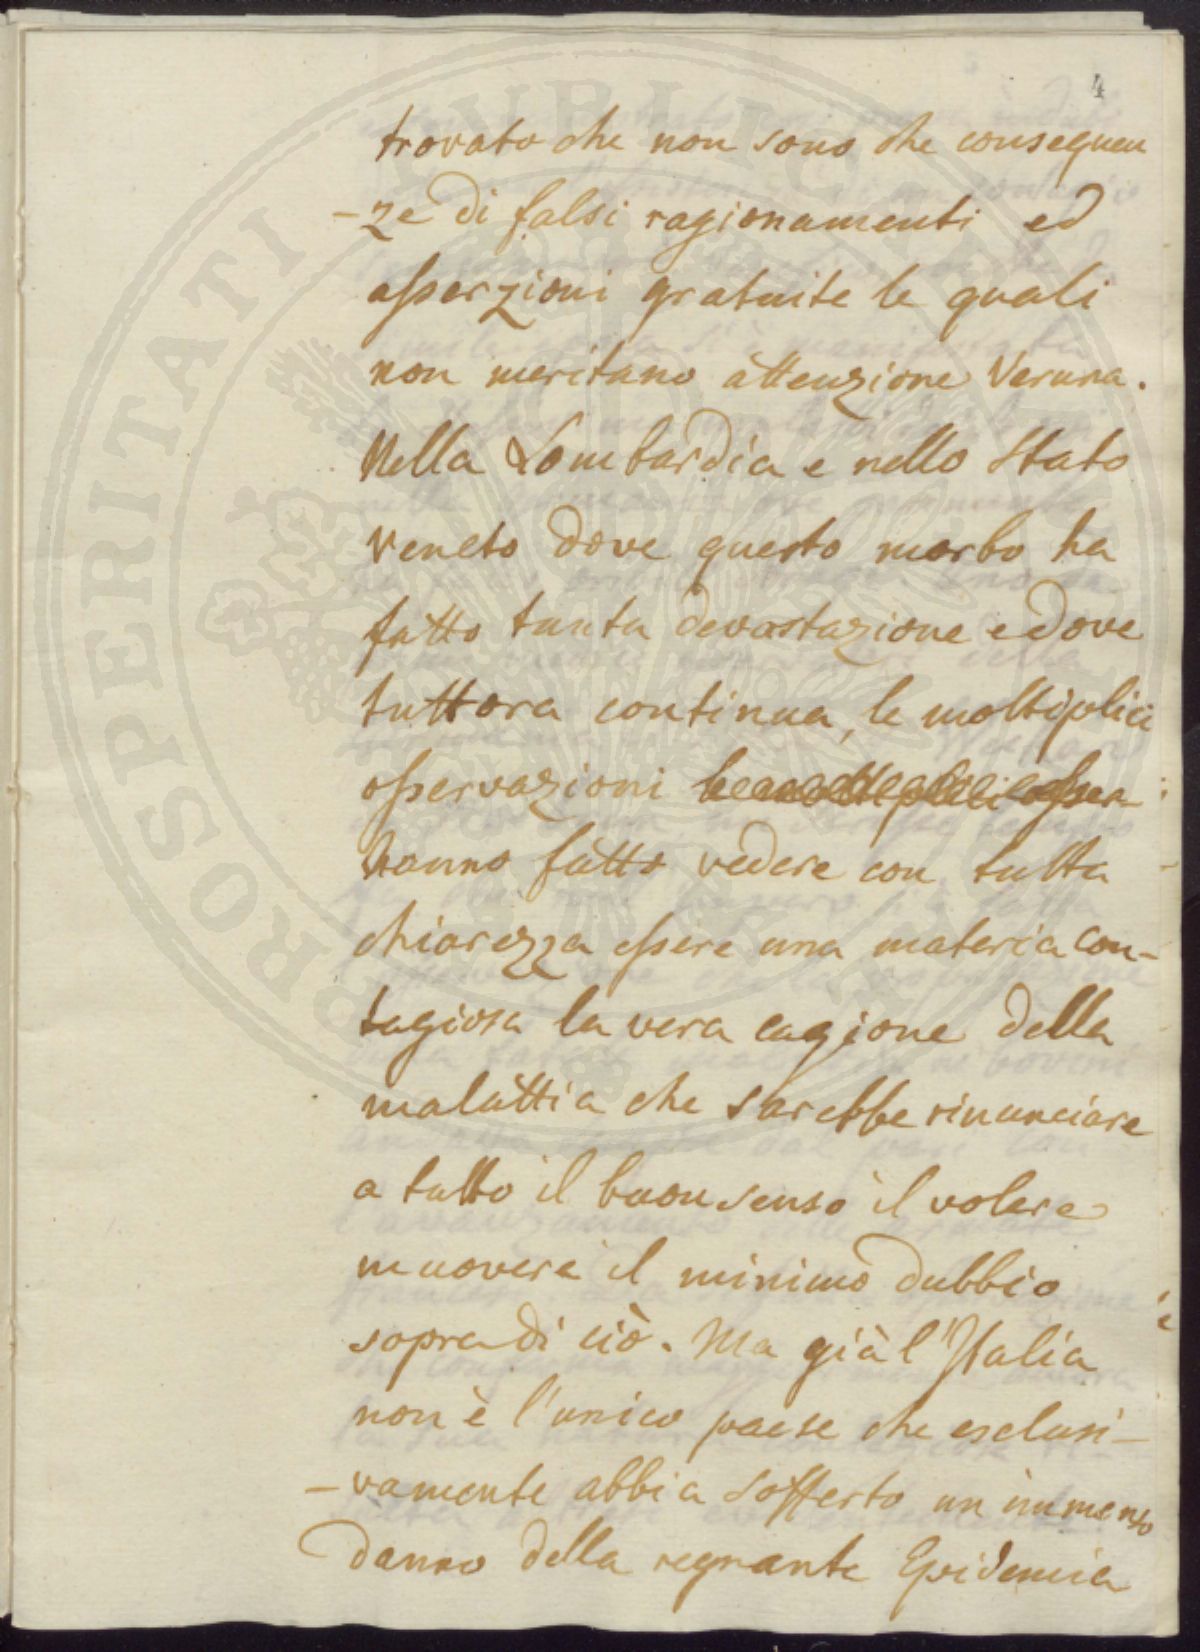 4
trovato che non sono che conseguen
-ze di falsi ragionamenti ed
asserzioni gratuite le quali
non meritano attenzione Veruna.
Nella Lombardia e nello Stato
Veneto dove questo morbo ha
fatto tanta devastazione e dove
tuttora continua, le moltiplici
osservazioni le moltiplici osser-
hanno fatto vedere con tutta
chiarezza essere una materia con-
tagiosa la vera cagione della
malattia che sarebbe rinunciare
a tutto il buon senso il volere
muovere il minimo dubbio
sopra di ciò. Ma già l'Italia
non è l'unico paese che esclusi-
-vamente abbia sofferto un immenso
danno della regnante Epidemia
PROSPERITATI PUBLICAE